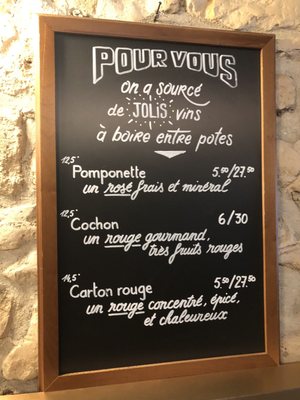 POUR VOUS
on a sourcé
de JOLIS vins
à boire entre potes
12,5°
Pomponette 5.50/27.50
un rosé frais et minéral
12,5°
Cochon 6/30
un rouge gourmand,
très fruits rouges
14,5°
Carton rouge 5.50/27.50
un rouge concentré, épicé,
et chaleureux